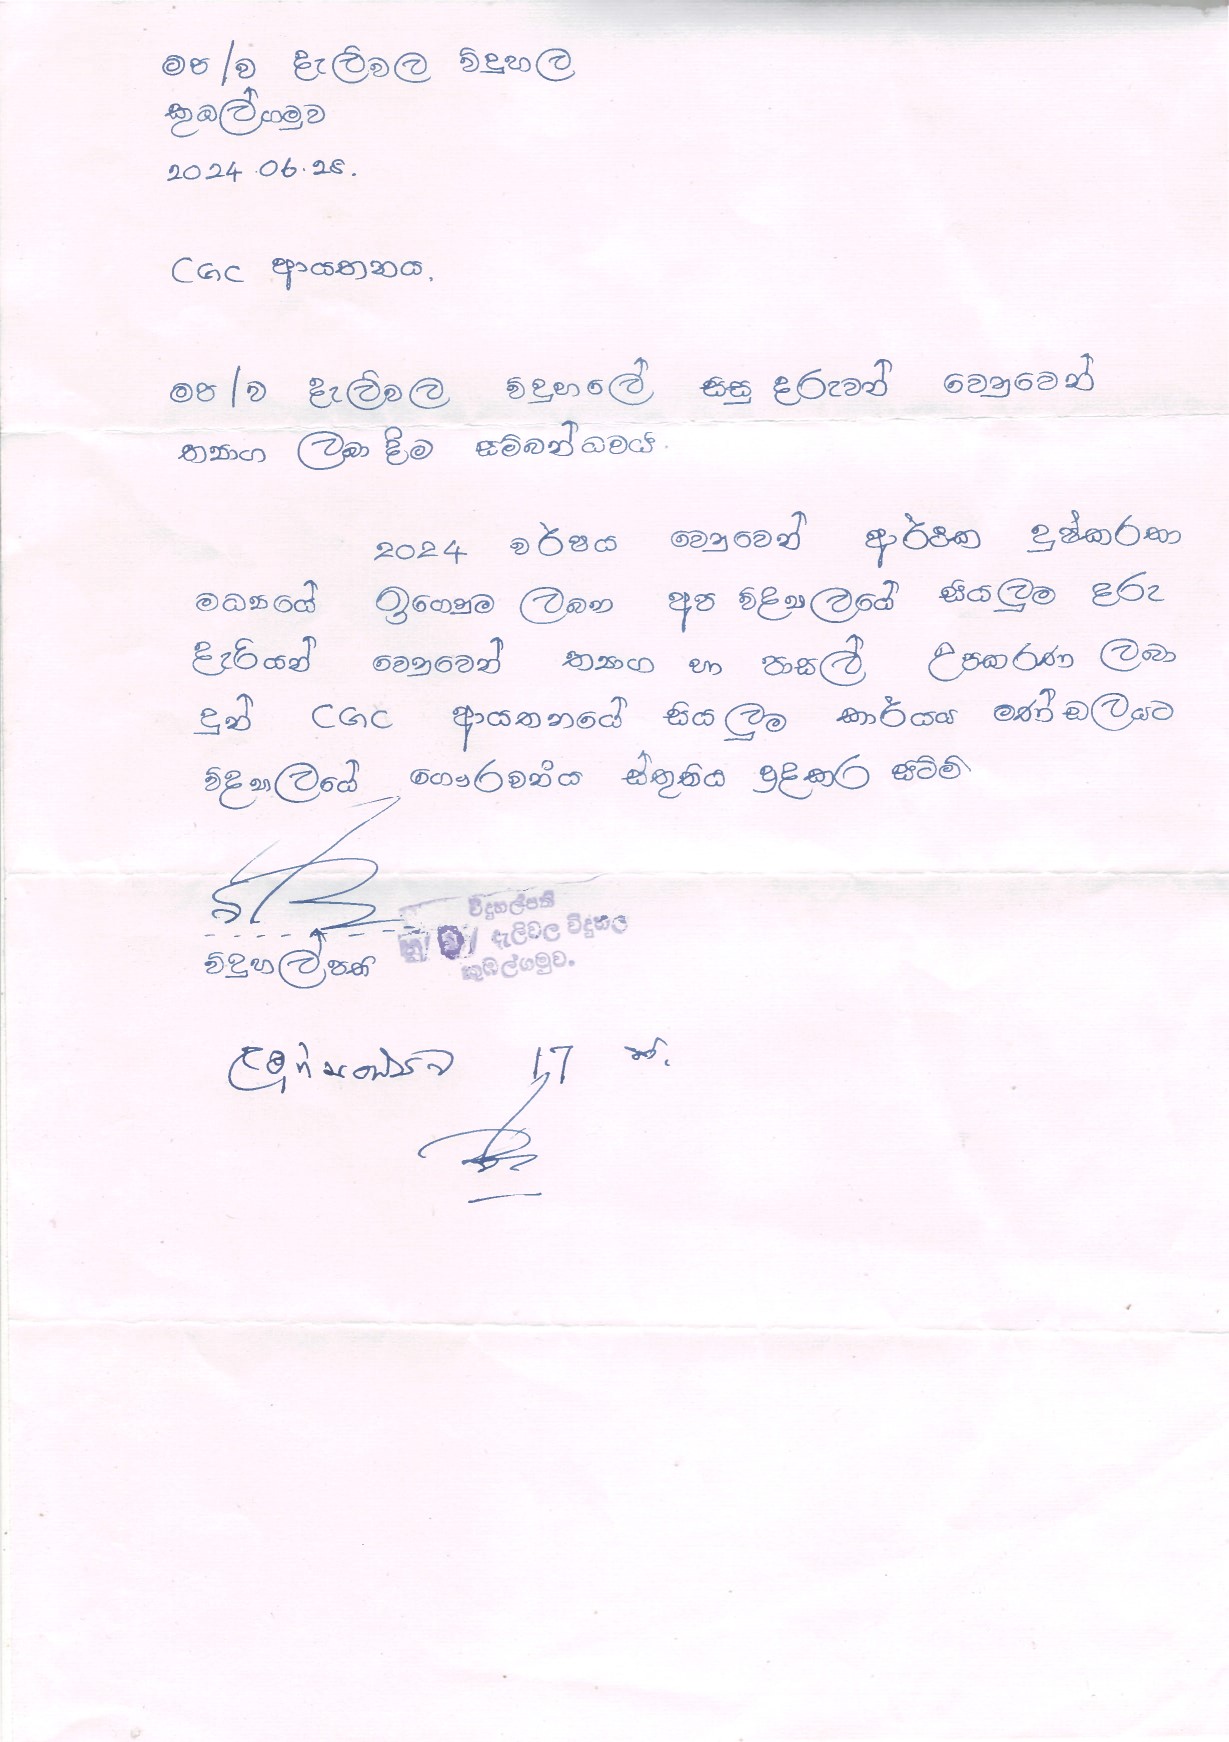 මප/ව දැලිවල විදුහල
කුඹල්ගමුව
2024.06.28.
CGC ආයතනය.
මප/ව දැලිවල විදුහලේ සිසු දරුවන් වෙනුවෙන්
ත්‍යාග ලබාදීම සම්බන්ධවයි.
2024 වර්ෂය වෙනුවෙන් ආර්ථික දුෂ්කරතා
මධ්‍යයේ ඉගෙනුම ලබන අප විද්‍යාලයේ සියලුම දරු
දැරියන් වෙනුවෙන් ත්‍යාග හා පාසල් උපකරණ ලබා
දුන් CGC ආයතනයේ සියලුම කාර්යය මණ්ඩලයට
විද්‍යාලයේ ගෞරවනීය ස්තුතිය පුදකර සිටිමි
විදුහල්පති
දැලිවල විදුහල
කුඹල්ගමුව.
විදුහල්පති
17 කි.